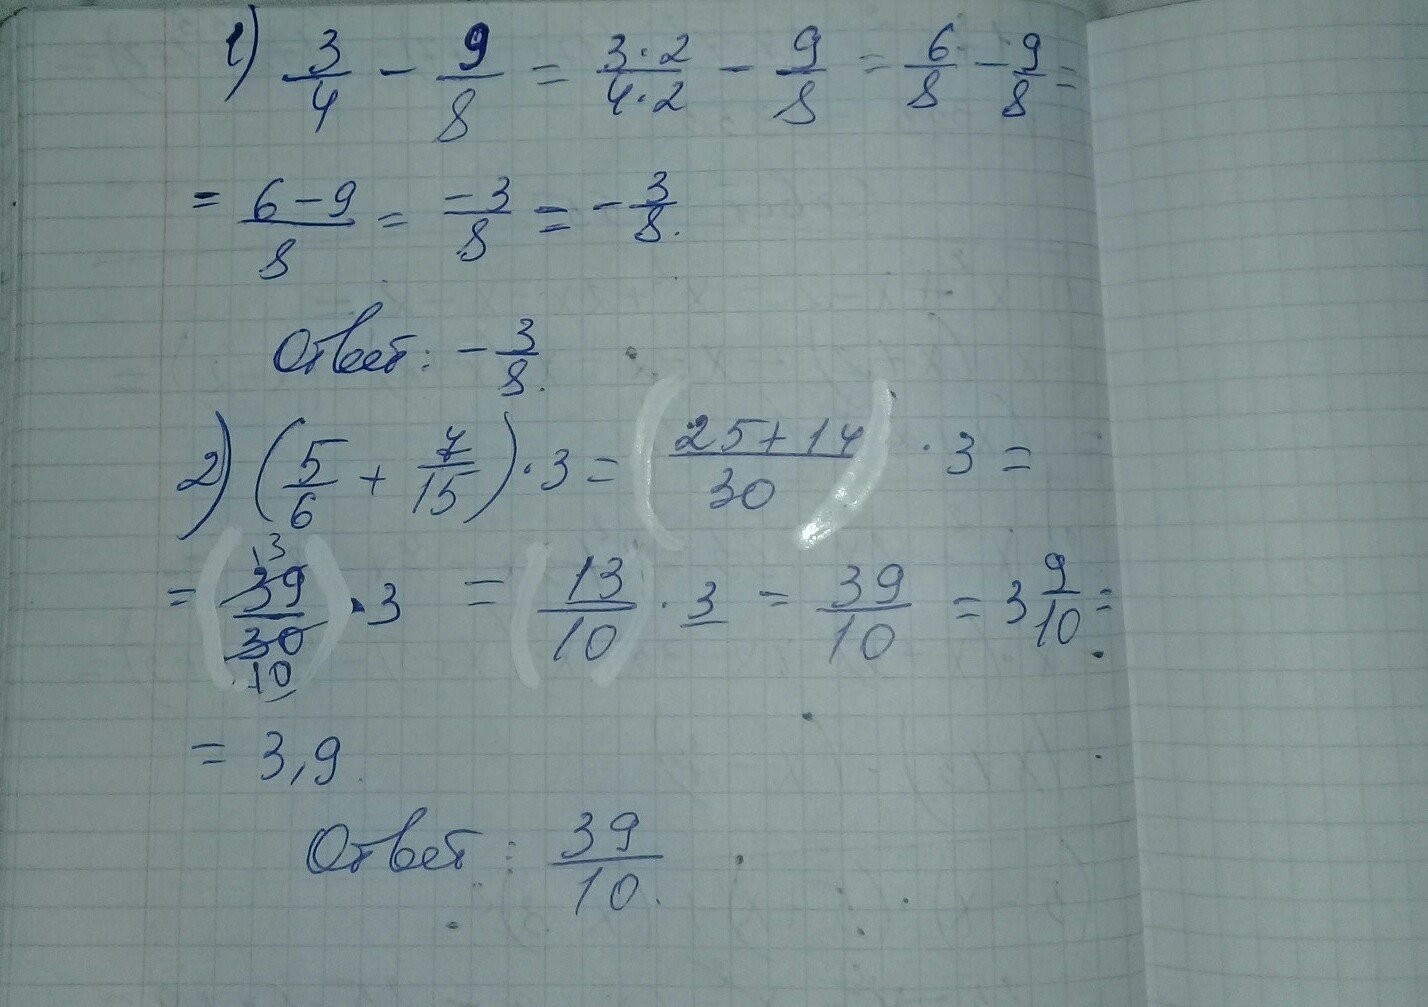 1) 3/4 - 9/8 = 3·2/4·2 - 9/8 = 6/8 - 9/8 =
= 6-9/8 = -3/8 = -3/8.
Ответ: -3/8.
2) (5/6 + 7/15)·3 = (25+14/30)·3 =
= (39/30)·3 = (13/10)·3 = 39/10 = 3 9/10 =
13
10
= 3,9.
Ответ: 39/10.